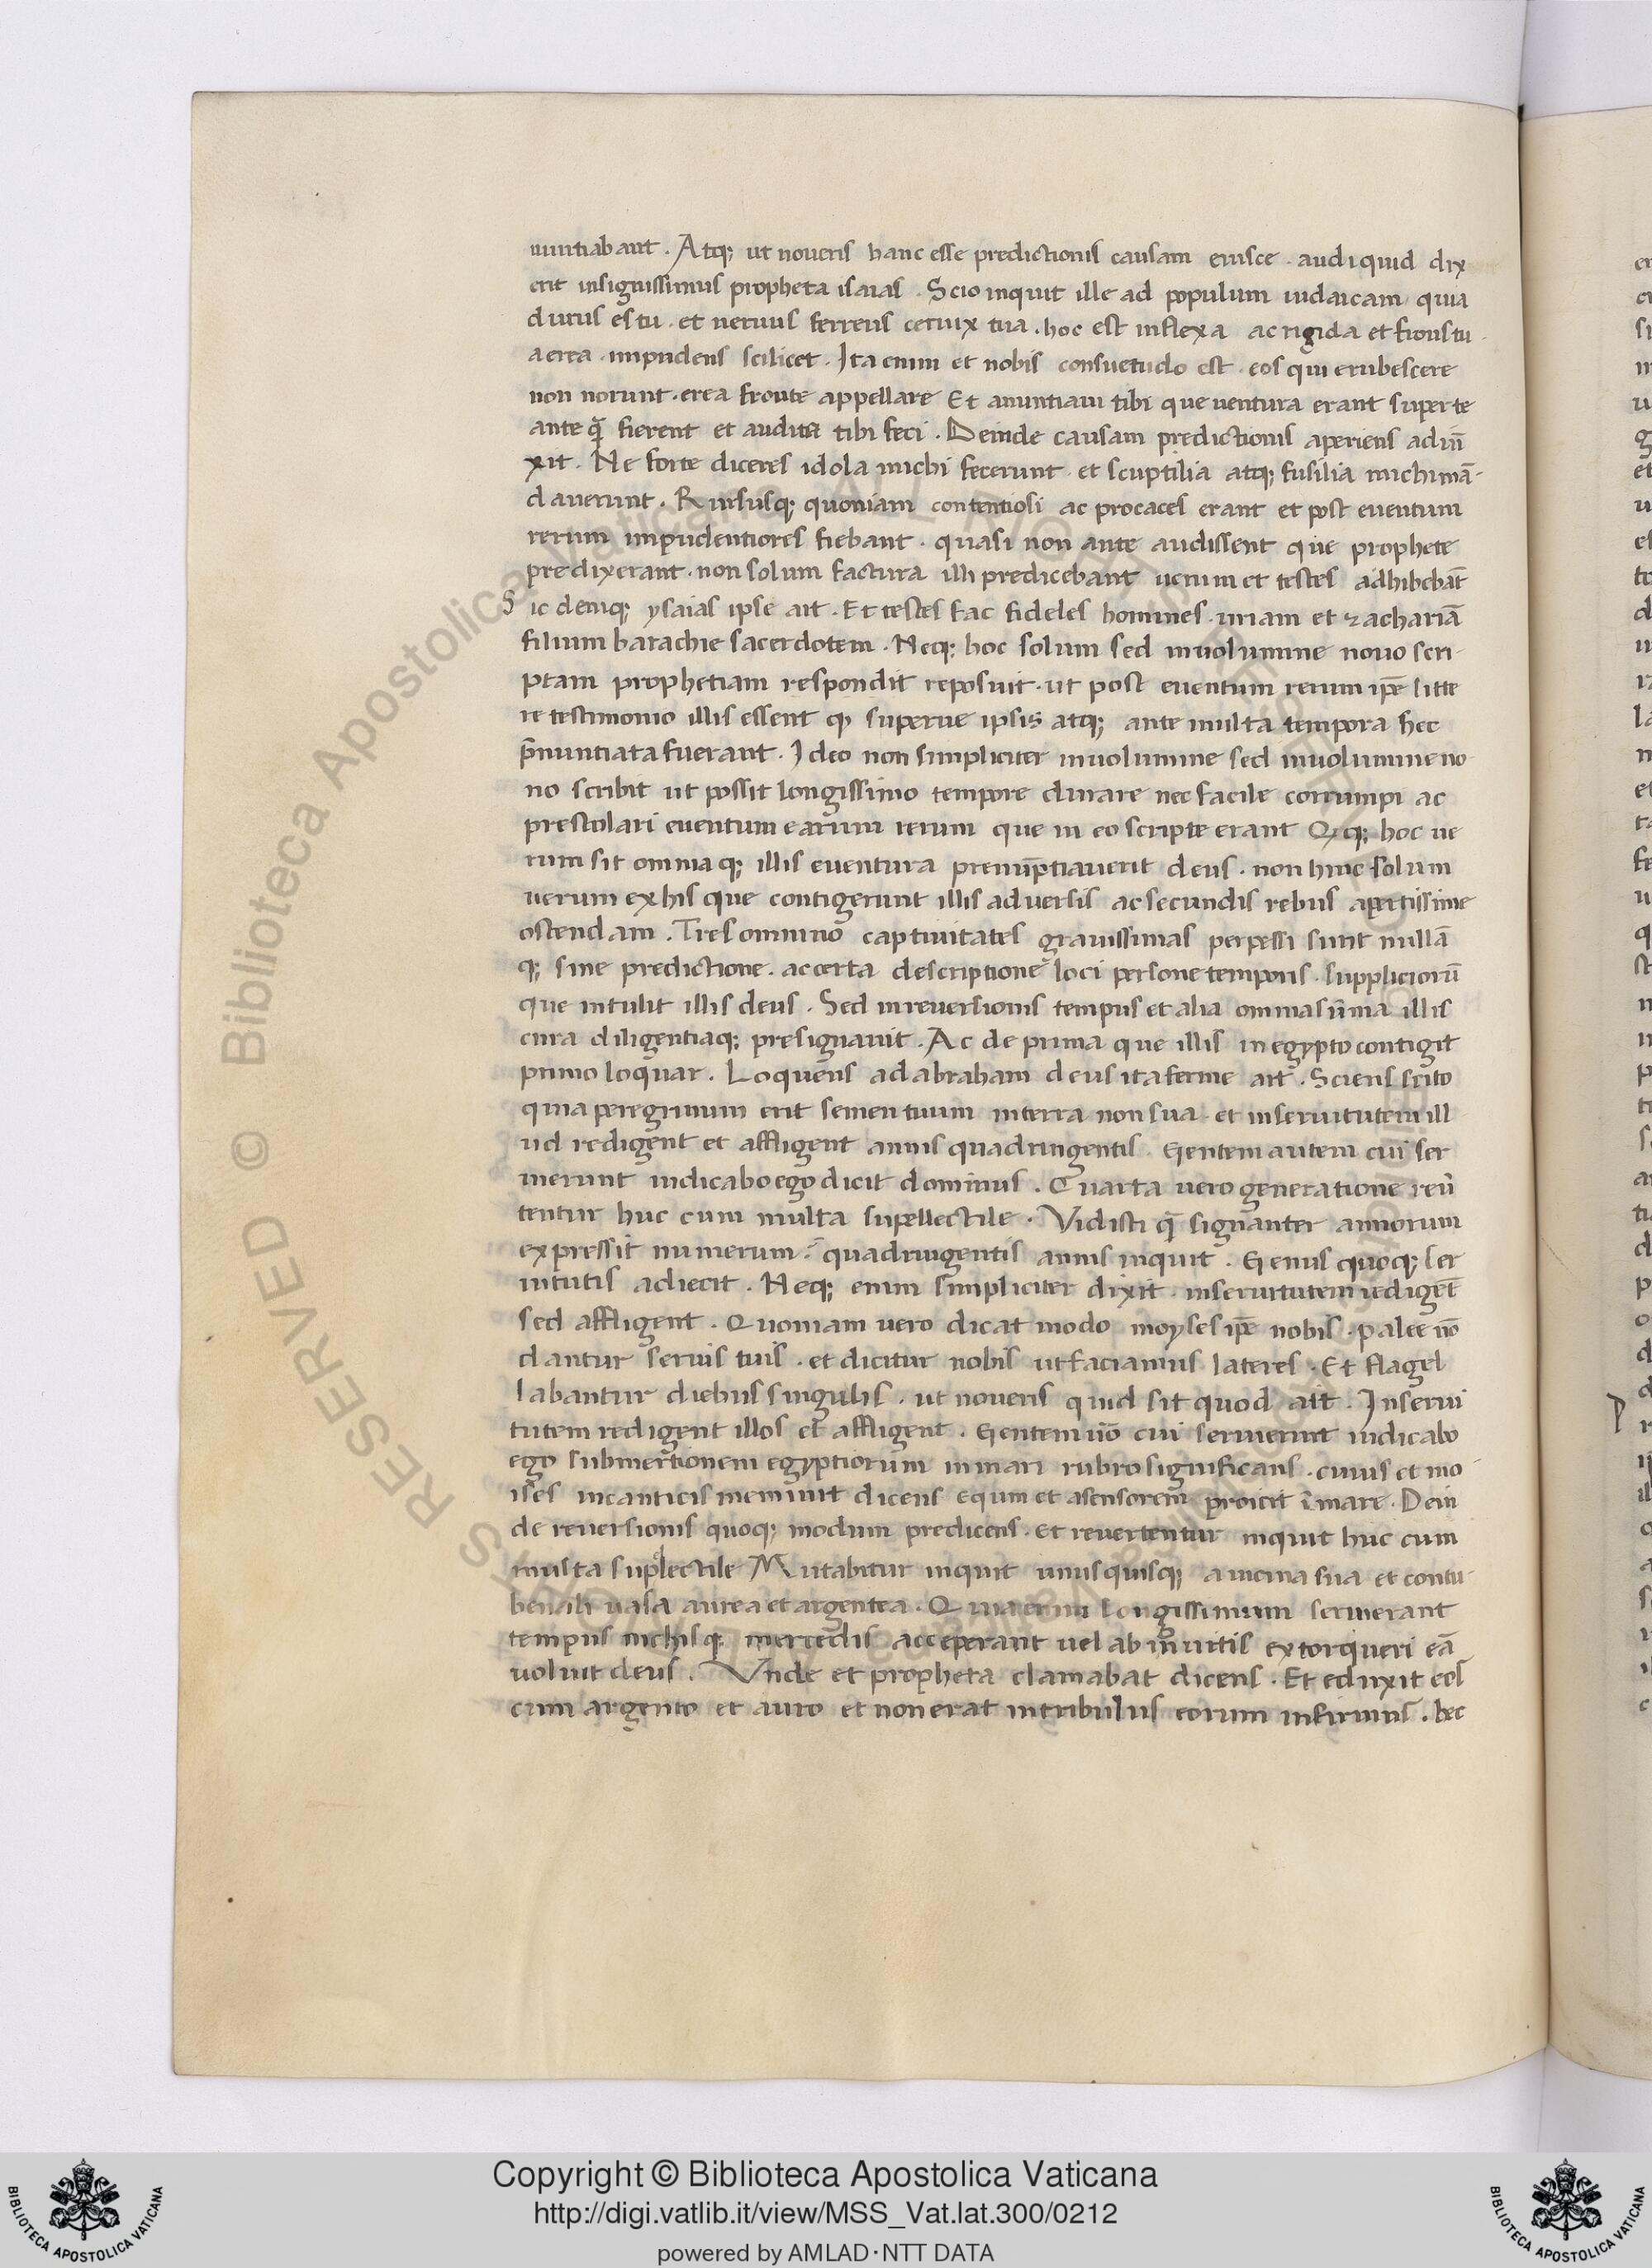 nuntiabant. Atq; ut noueris hanc esse predictionis causam eiusce. audi quid dix
erit insignissimus propheta isaias. Scio inquit ille ad populum iudaicam quia
durus es tu. et neruus ferreus ceruix tua. hoc est inflexa ac rigida et frons tu
a erea. impudens scilicet. Ita enim et nobis consuetudo est. eos qui erubescere
non norunt. erea fronte appellare Et anuntiaui tibi que uentura erant super te
ante q̃ fierent et audita tibi feci. Deinde causam predictionis aperiens adiũ
xit. Ne forte diceres idola michi fecerunt. et scuptilia atq; fusilia michi mã
dauerunt. Rursusq; quoniam contentiosi ac procaces erant et post euentum
rerum impudentiores fiebant. quasi non ante audissent que prophete
predixerant. non solum factura illi predicebant uerum et testes adhibebãt
Sic deniq; ysaias ipse ait. Et testes fac fideles homines. uriam et zachariã
filium barachie sacerdotem. Neq; hoc solum sed in uolumine nouo scri
ptam prophetiam respondit reposuit. ut post euentum rerum ip̃e litte
re testimonio illis essent ꝙ superue ipsis atq; ante multa tempora hec
p̃nuntiata fuerant. Ideo non simpliciter in uolumine sed in uolumine no
uo scribit ut possit longissimo tempore durare nec facile corrumpi ac
prestolari euentum earum rerum que in eo scripte erant Qq; hoc ue
rum sit omnia q; illis euentura prenuptiauerit deus. non hinc solum
uerum ex his que contigerunt illis aduersis ac secundis rebus apertissime
ostendam. Tres omnino captiuitates grauissimas perpessi sunt nullã
q; sine predictione. ac certa descriptione loci persone temporis. suppliciorũ
que intulit illis deus. Sed in reuersionis tempus et alia omnia sũma illis
cura diligentiaq; presignauit. Ac de prima que illis in egypto contigit
primo loquar. Loquens ad abraham deus ita ferme ait. Sciens scito
quia peregrinum erit semen tuum in terra non sua. et in seruitutem ill
ud redigent et affligent annis quadringentis. Gentem autem cui ser
uierunt iudicabo ego dicit dominus. Cuarta uero generatione reũ
tentur huc cum multa supellectile. Vidisti q̃ signanter annorum
expressit numerum. quadringentis annis inquit. Genus quoq; ser
uitutis adiecit. Neq; enim simpliciter dixit. in seruitutem redigẽt
sed affligent. Quoniam uero dicat modo moyses ip̃e nobis. palee nõ
dantur seruis tuis. et dicitur nobis ut faciamus lateres. Et flagel
labantur diebus singulis. ut noueris quid sit quod ait. In serui
tutem redigent illos et affligent. Gentem ũo cui seruierunt iudicabo
ego submertionem egyptiorum in mari rubro significans. cuius et mo
ises in canticis meminit dicens equm et asensorem proicit ĩ mare. Dein
de reuersionis quoq; modum predicens. et reuertentur inquit huc cum
multa suplectile Mutabitur inquit unusquisq; a uicina sua et contu
benali uasa aurea et argentea. Quia enim longissimum seruierant
tempus nichilq; mercedis acceperant uel ab inuitis extorqueri eã
uoluit deus. Vnde et propheta clamabat dicens. Et eduxit eos
cum argento et auro et non erat in tribubus eorum infirmus. hec
© Biblioteca Apostolica Vaticana
Copyright © Biblioteca Apostolica Vaticana
http://digi.vatlib.it/view/MSS_Vat.lat.300/0212
powered by AMLAD·NTT DATA
BIBLIOTECA APOSTOLICA VATICANA
BIBLIOTECA APOSTOLICA VATICANA